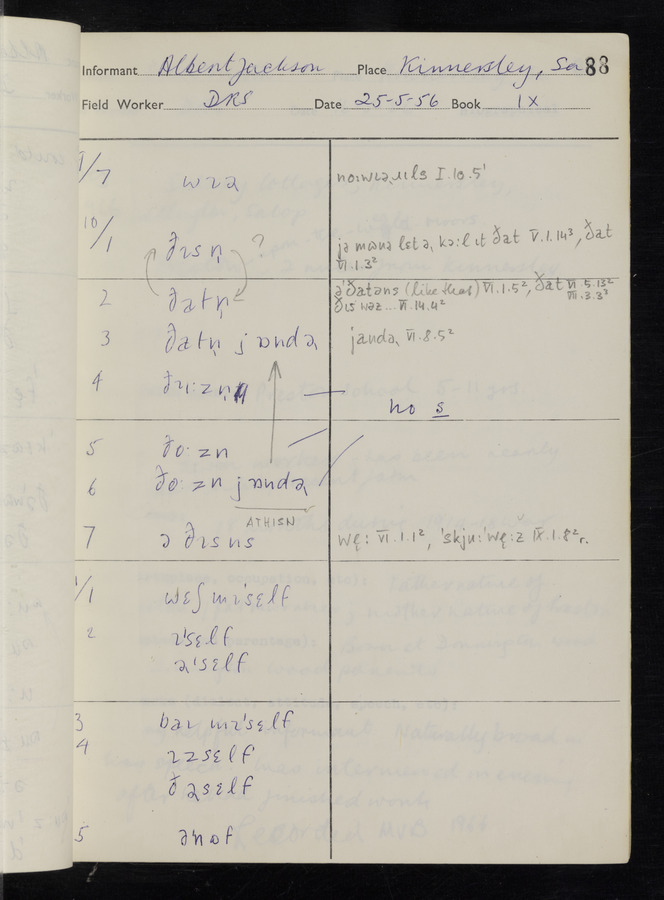 Informant Albert Jackson Place Kinnersley, Sa 88
Field Worker DRS Date 25-5-56 Book IX
1/7 wɪə
10/1 ðɪsn̩ ?
ðat V.1.14³, ðat
VI.1.3²
2 ðatn̩
ə'ðatəns (like that) VI.1.5², ðat VI.5.13²
VII.3.3²
ðɪs wəz... VI.14.4²
3 ðatn̩ jɒndə
jandə VI.8.5²
4 ðɪ:zn̩
no s
5 ðo·zn
6 ðo·zn jɒndə
ATHISN
7 ə ðɪsns
1/1 wɛʃ mɪ'sɛlf
2 ɪ'sɛlf
ə'sɛlf
3 baɪ mɪ'sɛlf
4 ɪzsɛlf
ðəsɛlf
5 ə'nɒf